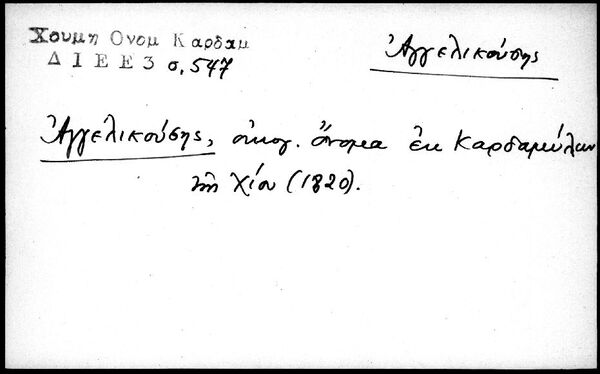 Χουμη Ονομ Καρδαμ
Δ Ι Ε Ε 3 σ. 547
Ἀγγελικούσης
Ἀγγελικούσης, οἰκογ. ὄνομα ἐκ Καρδαμύλων
τῆς Χίου (1820).